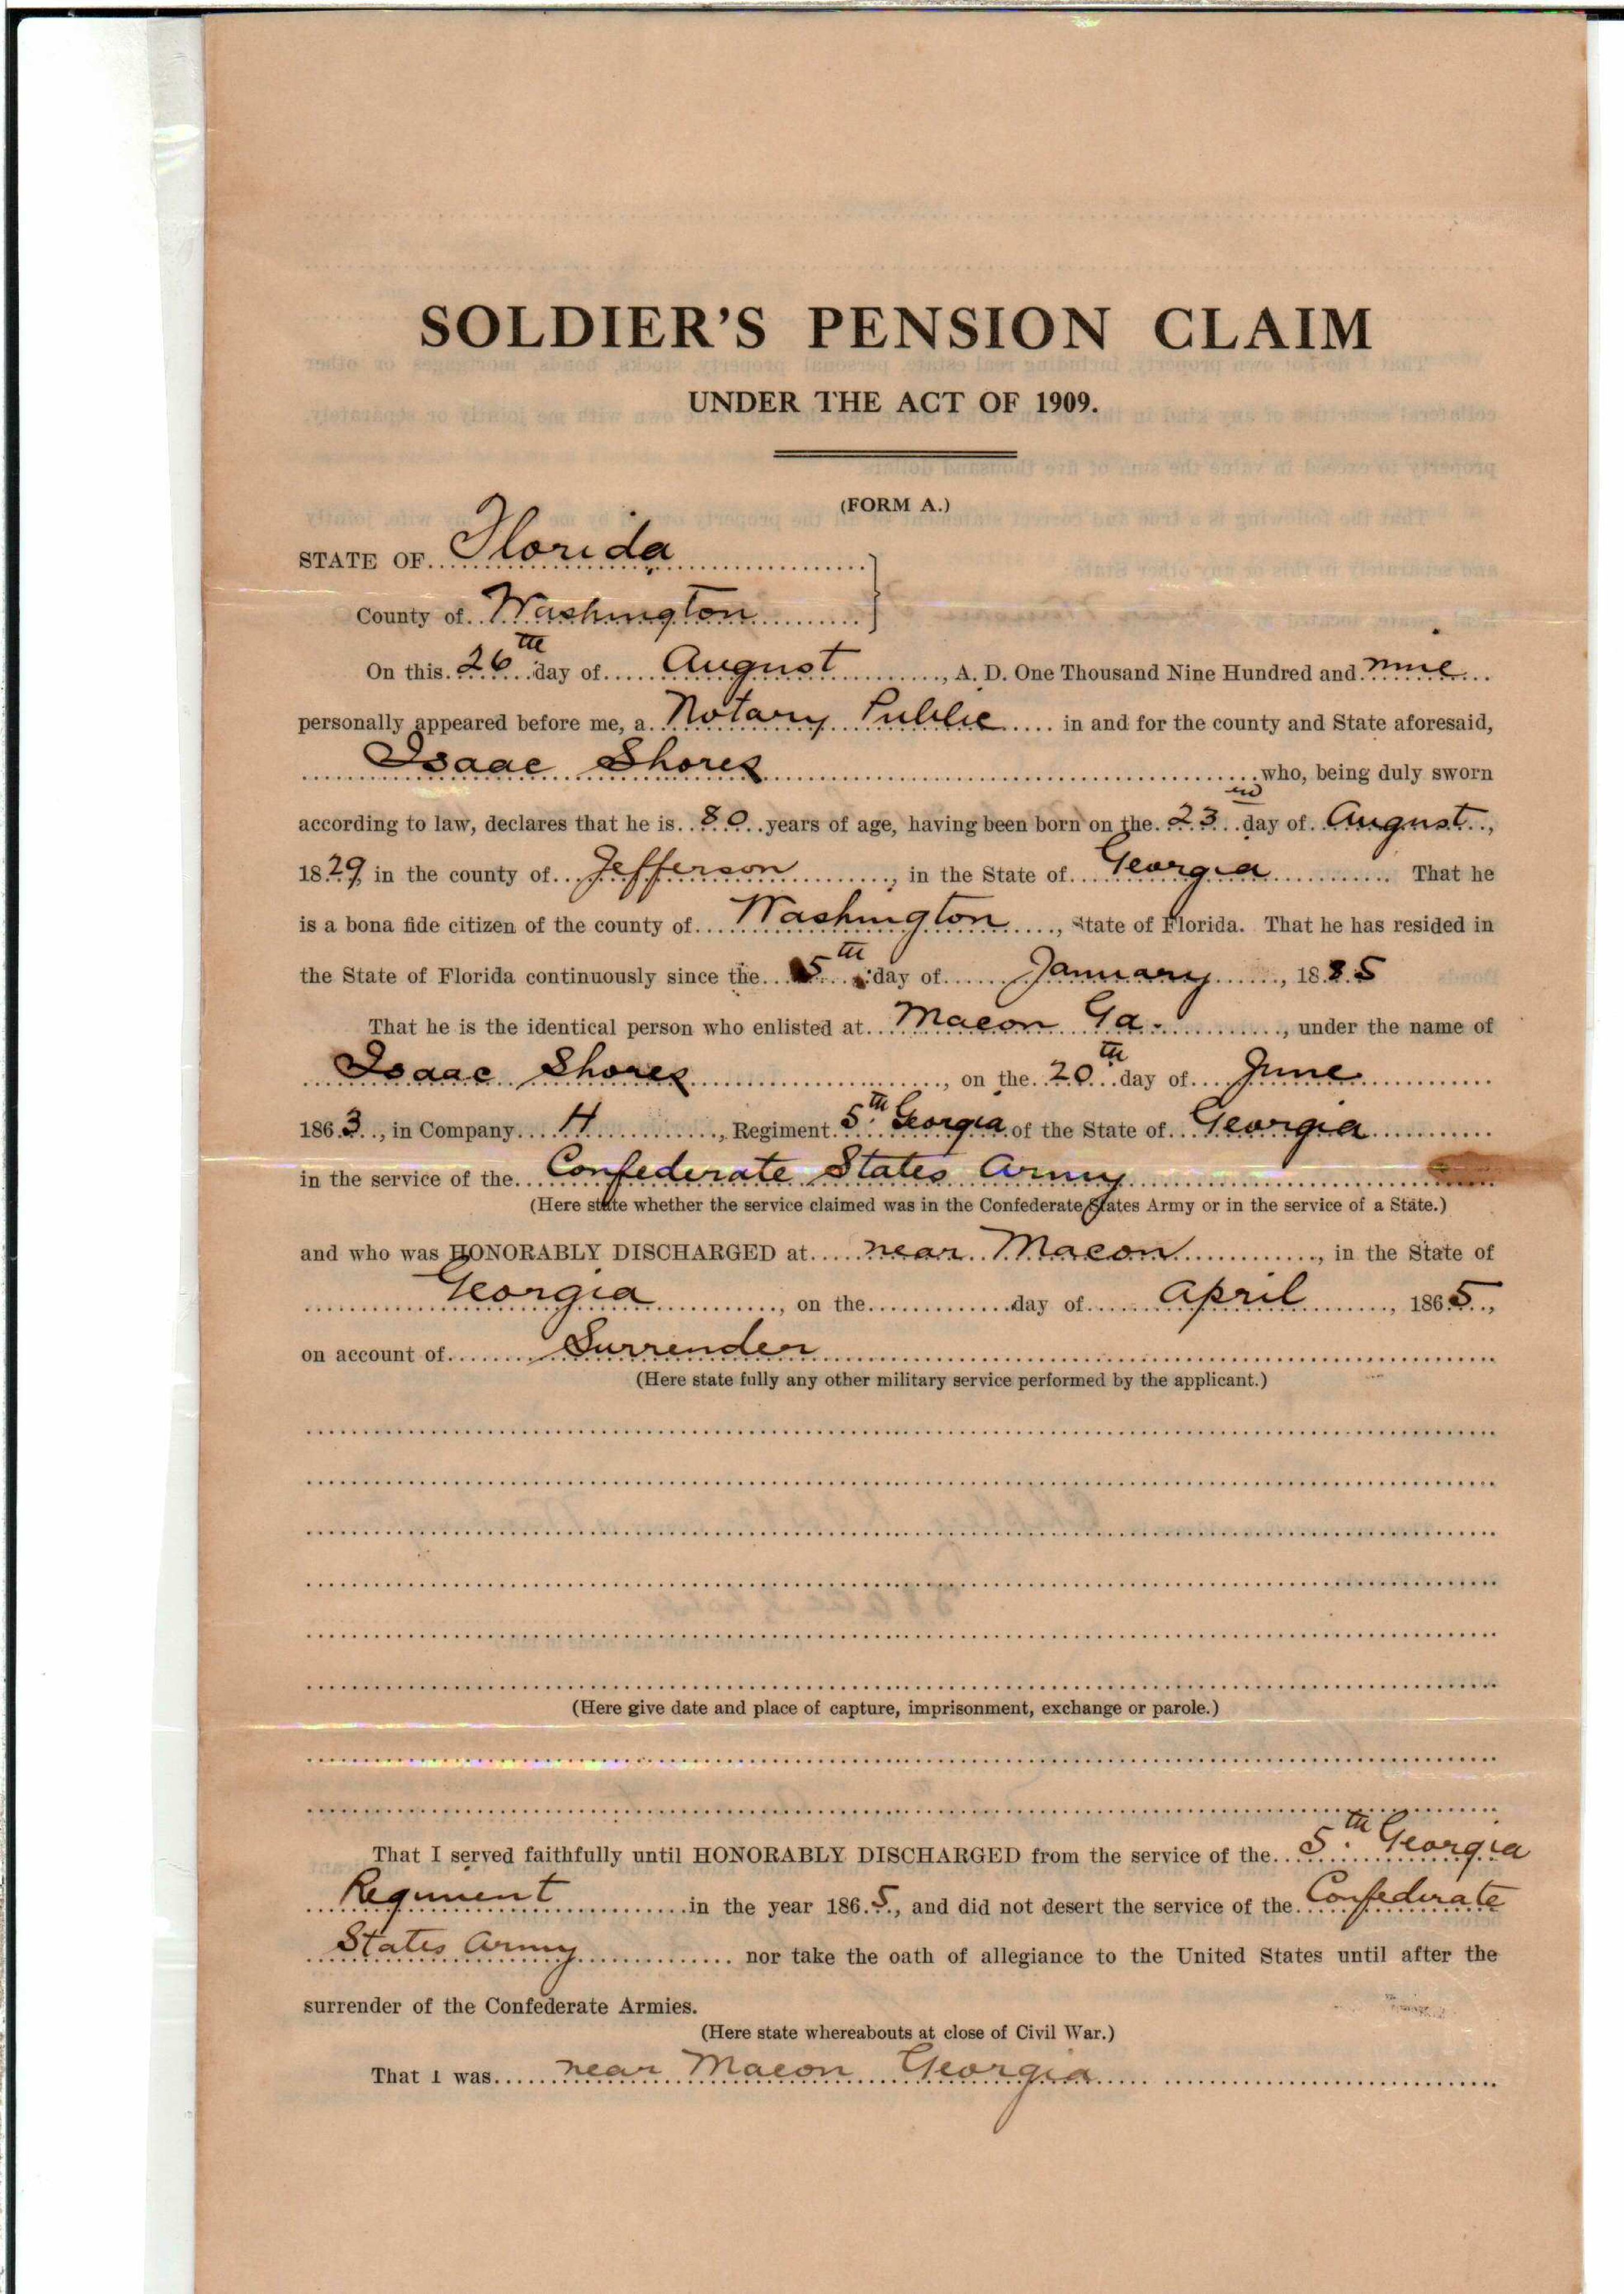 SOLDIER'S PENSION CLAIM
UNDER THE ACT OF 1909.
(FORM A.)
STATE OF Florida
County of Washington
On this 26th day of August, A. D. One Thousand Nine Hundred and nine
personally appeared before me, a Notary Public in and for the county and State aforesaid,
Isaac Shores who, being duly sworn
according to law, declares that he is 80 years of age, having been born on the 23rd day of August,
1829, in the county of Jefferson, in the State of Georgia That he
is a bona fide citizen of the county of Washington, State of Florida. That he has resided in
the State of Florida continuously since the 5th day of January, 1885
That he is the identical person who enlisted at Macon Ga., under the name of
Isaac Shores, on the 20th day of June
1863, in Company H, Regiment 5th Georgia of the State of Georgia
in the service of the Confederate States Army
(Here state whether the service claimed was in the Confederate States Army or in the service of a State.)
and who was HONORABLY DISCHARGED at near Macon, in the State of
Georgia, on the day of April, 1865,
on account of Surrender
(Here state fully any other military service performed by the applicant.)
(Here give date and place of capture, imprisonment, exchange or parole.)
That I served faithfully until HONORABLY DISCHARGED from the service of the 5th Georgia
Regiment in the year 1865, and did not desert the service of the Confederate
States Army nor take the oath of allegiance to the United States until after the
surrender of the Confederate Armies.
(Here state whereabouts at close of Civil War.)
That I was near Macon Georgia